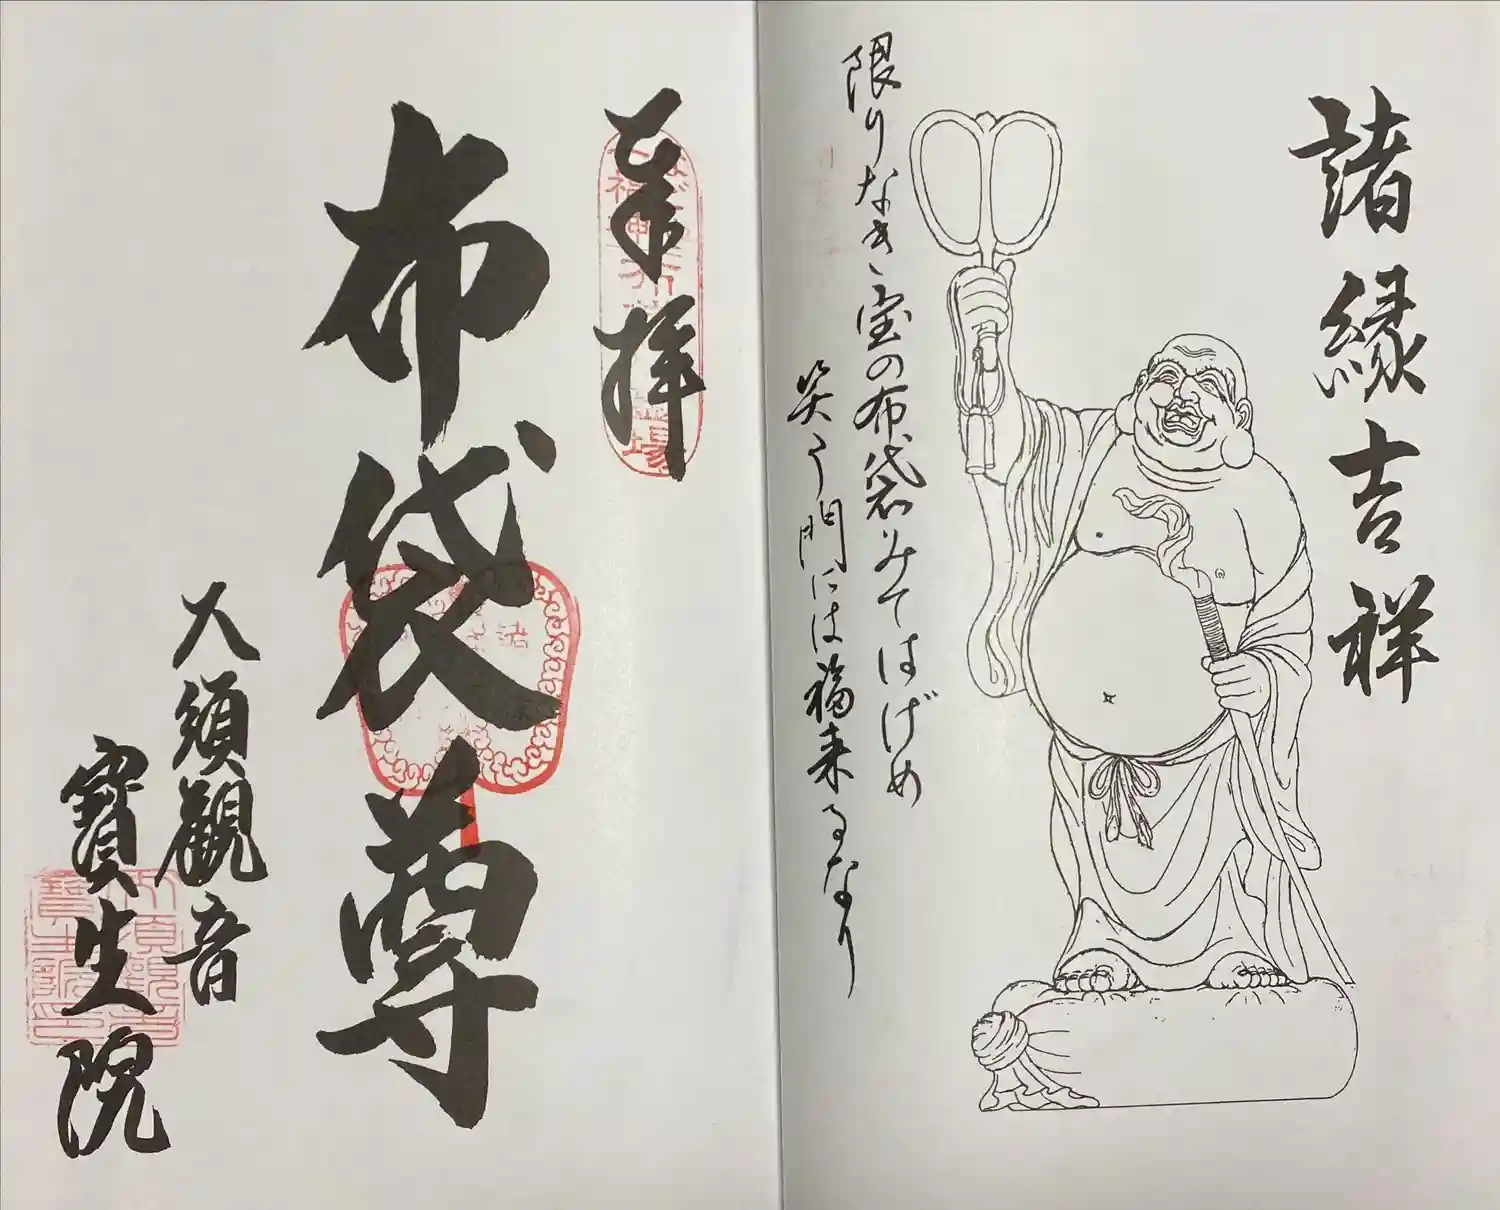 諸縁吉祥
限りなき宝の布袋みてはげめ
笑う門には福来るなり
奉拝
布袋尊
大須觀音
寶生院